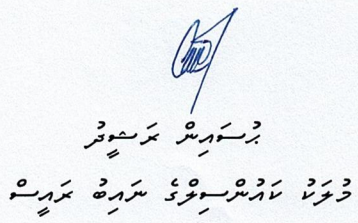 ޙުސައިން ރަޝީދު
މުލަކު ކައުންސިލްގެ ނައިބު ރައީސް